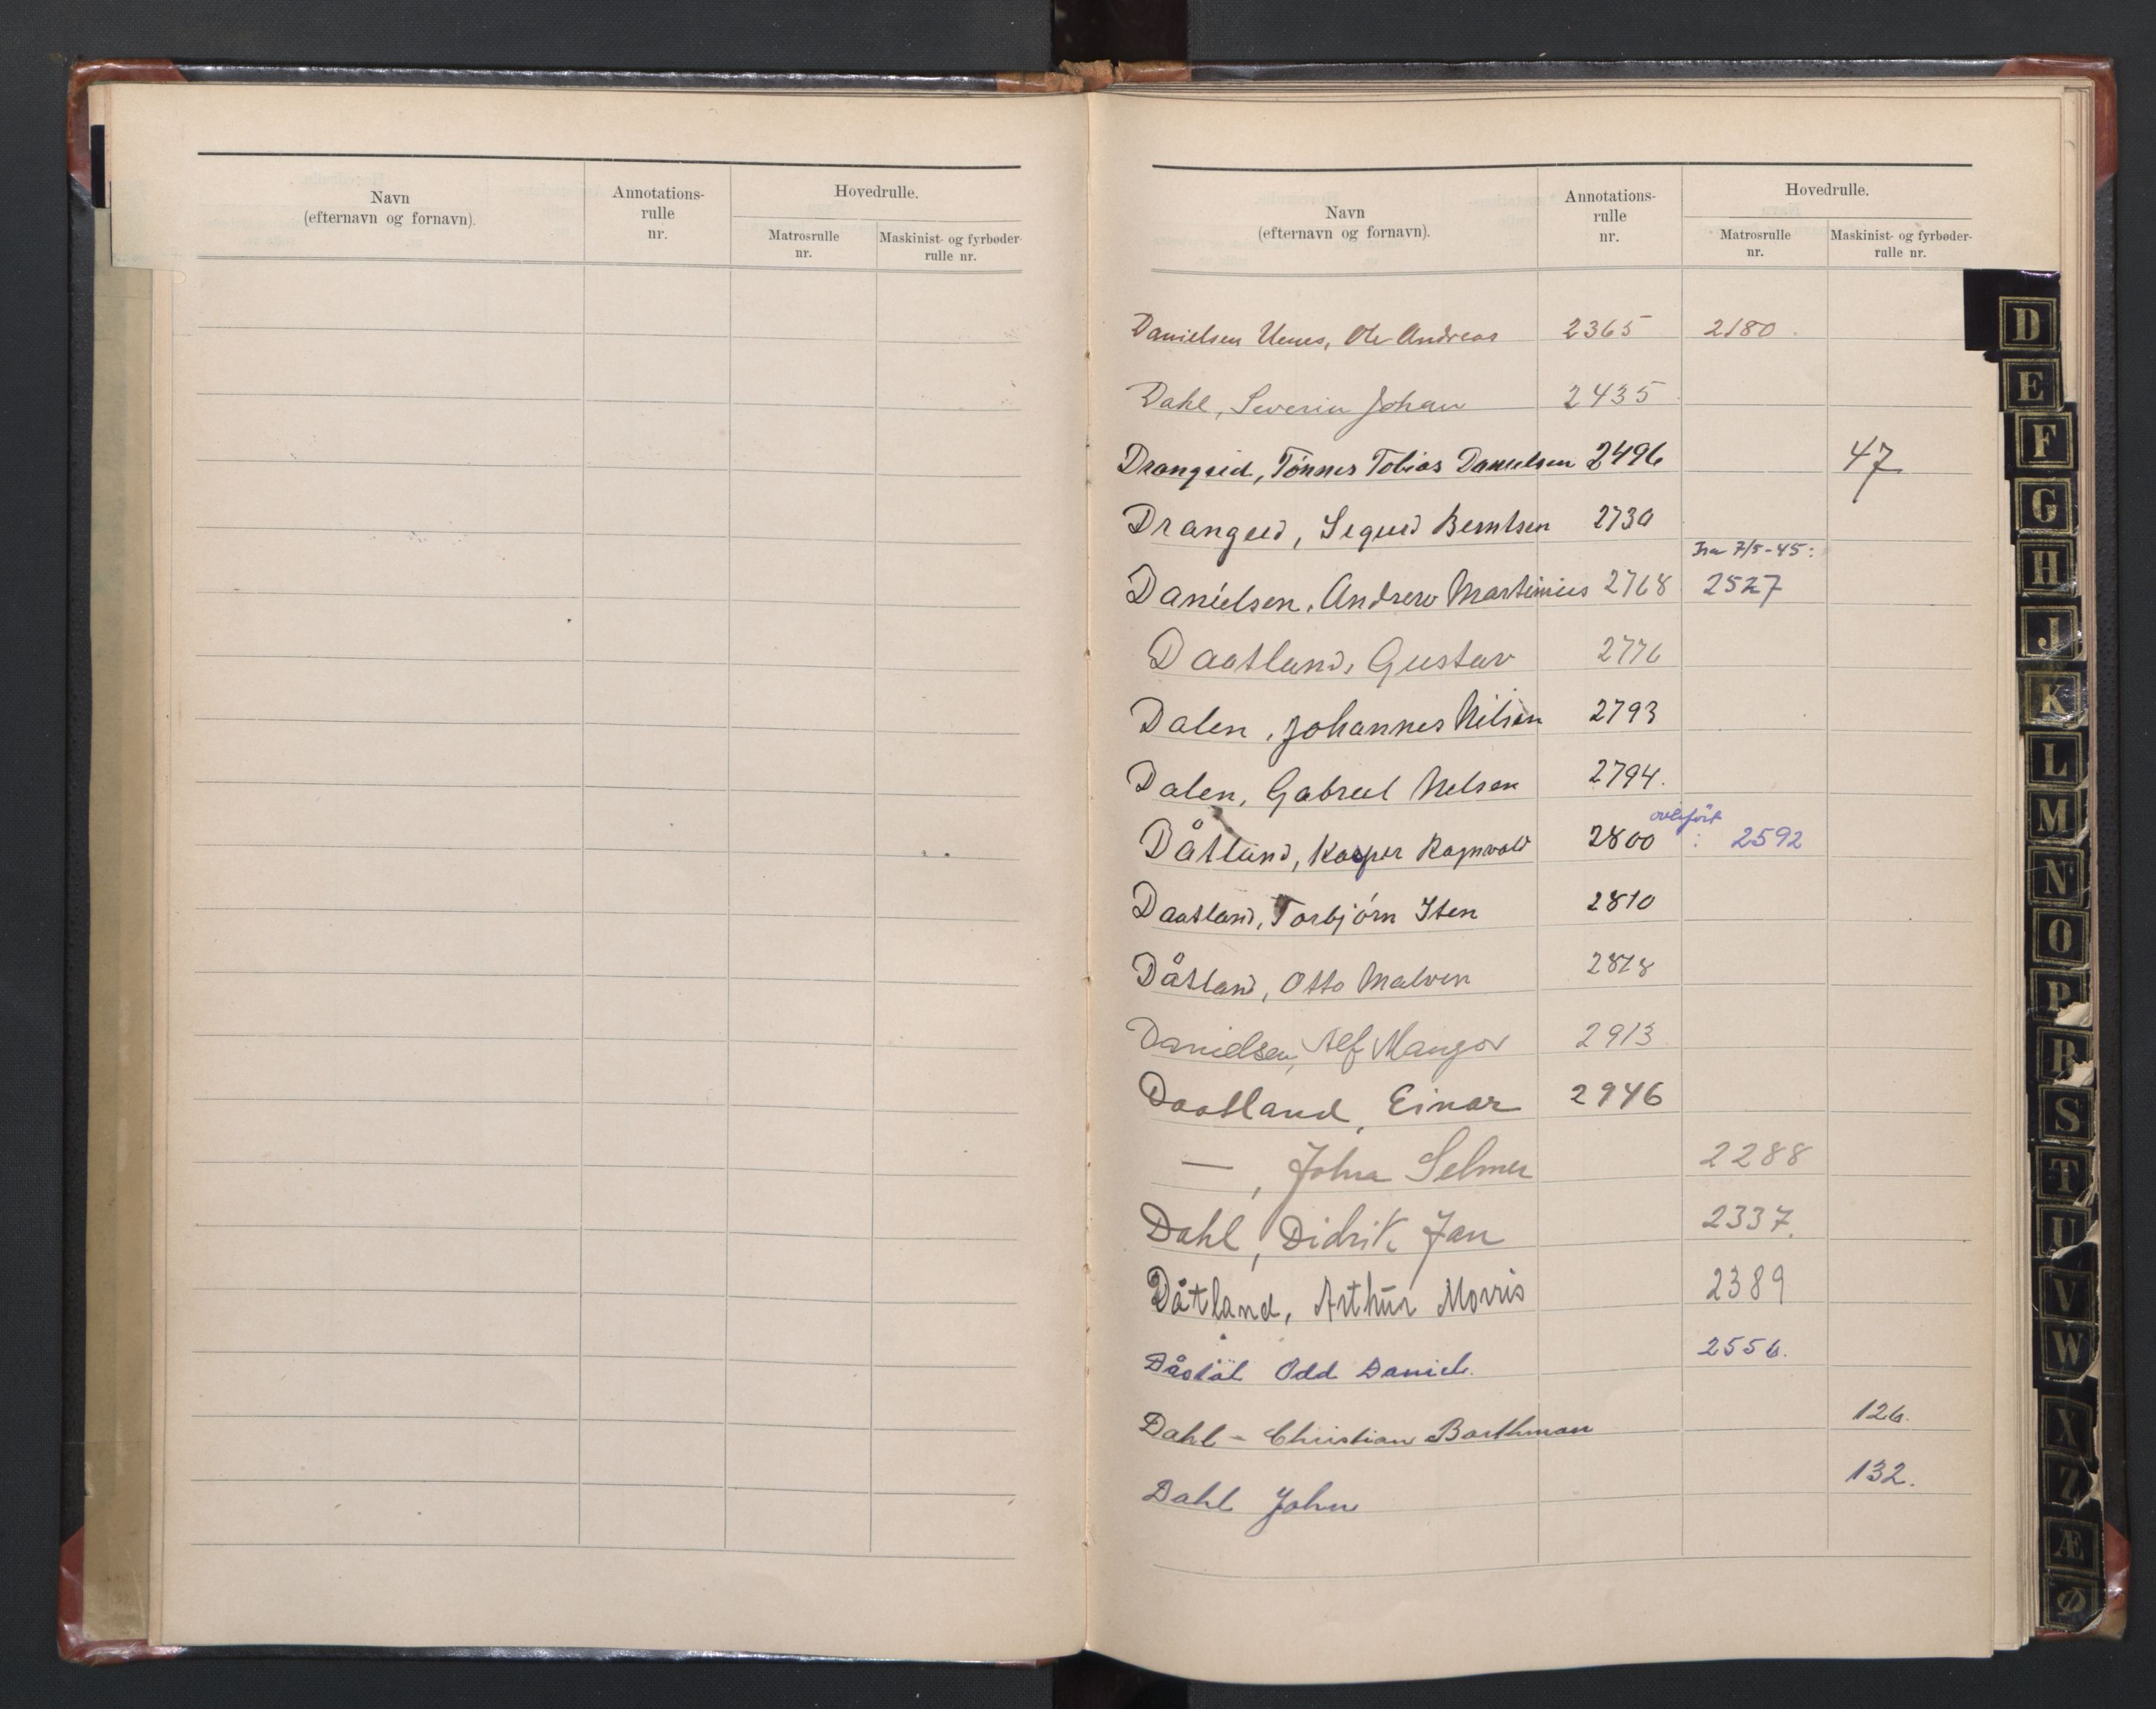 Navn
(efternavn og fornavn).
Annotations-
rulle
nr.
Hovedrulle.
Matrosrulle
nr.
Maskinist- og fyrbøder-
rulle nr.
Navn
(efternavn og fornavn).
Annotations-
rulle
nr.
Hovedrulle.
Matrosrulle
nr.
Maskinist- og fyrbøder-
rulle nr.
Danielsen Uenes, Ole Andreas 2365 2180.
Dahl, Severin Johan 2435
Drangeid, Tønnes Tobias Danielsen 2496 47
Drangeid, Sigurd Berntsen 2730
Fra 7/5-45:
Danielsen, Andreas Martinius 2768 2527
Daatland, Gustav 2776
Dalen, Johannes Nilsen 2793
Dalen, Gabriel Nilsen 2794.
overført
Dåtland, Kasper Ragnvald 2800 : 2592
Daatland, Torbjørn Sten 2810
Dåtland, Otto Malvin 2818
Danielsen, Alf Mangor 2913
Daatland, Einar 2946
—, John Selmer 2288
Dahl, Didrik Jan 2337.
Dåtland, Arthur Morris 2389
Dåstøl Odd Daniel. 2556.
Dahl - Christian Barthman 126.
Dahl John 132.
D
E
F
G
H
J
K
L
M
N
O
P
R
S
T
U
V
W
X
Z
Æ
Ø